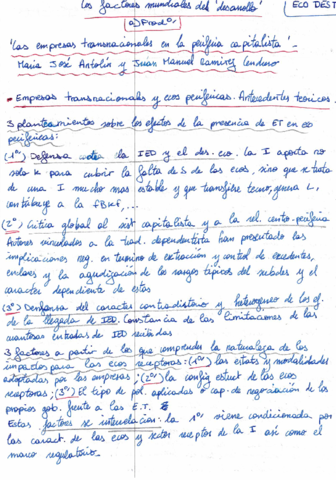 Los factores mundiales del "desarrollo"
ECO DEST
a) Prada.
"Las empresas transnacionales en la periferia capitalista".
María José Antolín y Juan Manuel Ramírez Cendrero
- Empresas transnacionales y ecos periféricas. Antecedentes teóricos.
3 planteamientos sobre los efectos de la presencia de ET en ecos
periféricas:
(1º) Defensa la IED y el des. eco. la I aporta no
solo K para cubrir la falta de S de las ecos, sino que se trata
de una I mucho mas estable y que transfiere tecno, genera L,
contribuye a la FBKF,...
(2º) Crítica global al sist capitalista y a la rel. centro-periferia
Autores vinculados a la trad. dependentista han presentado las
implicaciones neg. en termino de extracción y control de excedentes,
enclaves y la agudización de los rasgos típicos del subdes y el
caracter dependiente de estas
(3º) Defensa del caracter contradictorio y heterogeneo de los ef.
de la llegada de IED. Constancia de las limitaciones de las
cuantiosas entradas de IED recibidas
3 factores a partir de los que comprender la naturaleza de los
impactos para las ecos receptoras: (1º) las estrats y modalidades
adoptadas por las empresas; (2º) la config estruct de las ecos
receptoras; (3º) El tipo de pol. aplicadas y cap. de negociación de los
propios gob. frente a las E.T.
Estas factores se interrelacion: la 1º viene condicionada por
las caract. de las ecos y sector receptor de la I así como el
marco regulatorio.